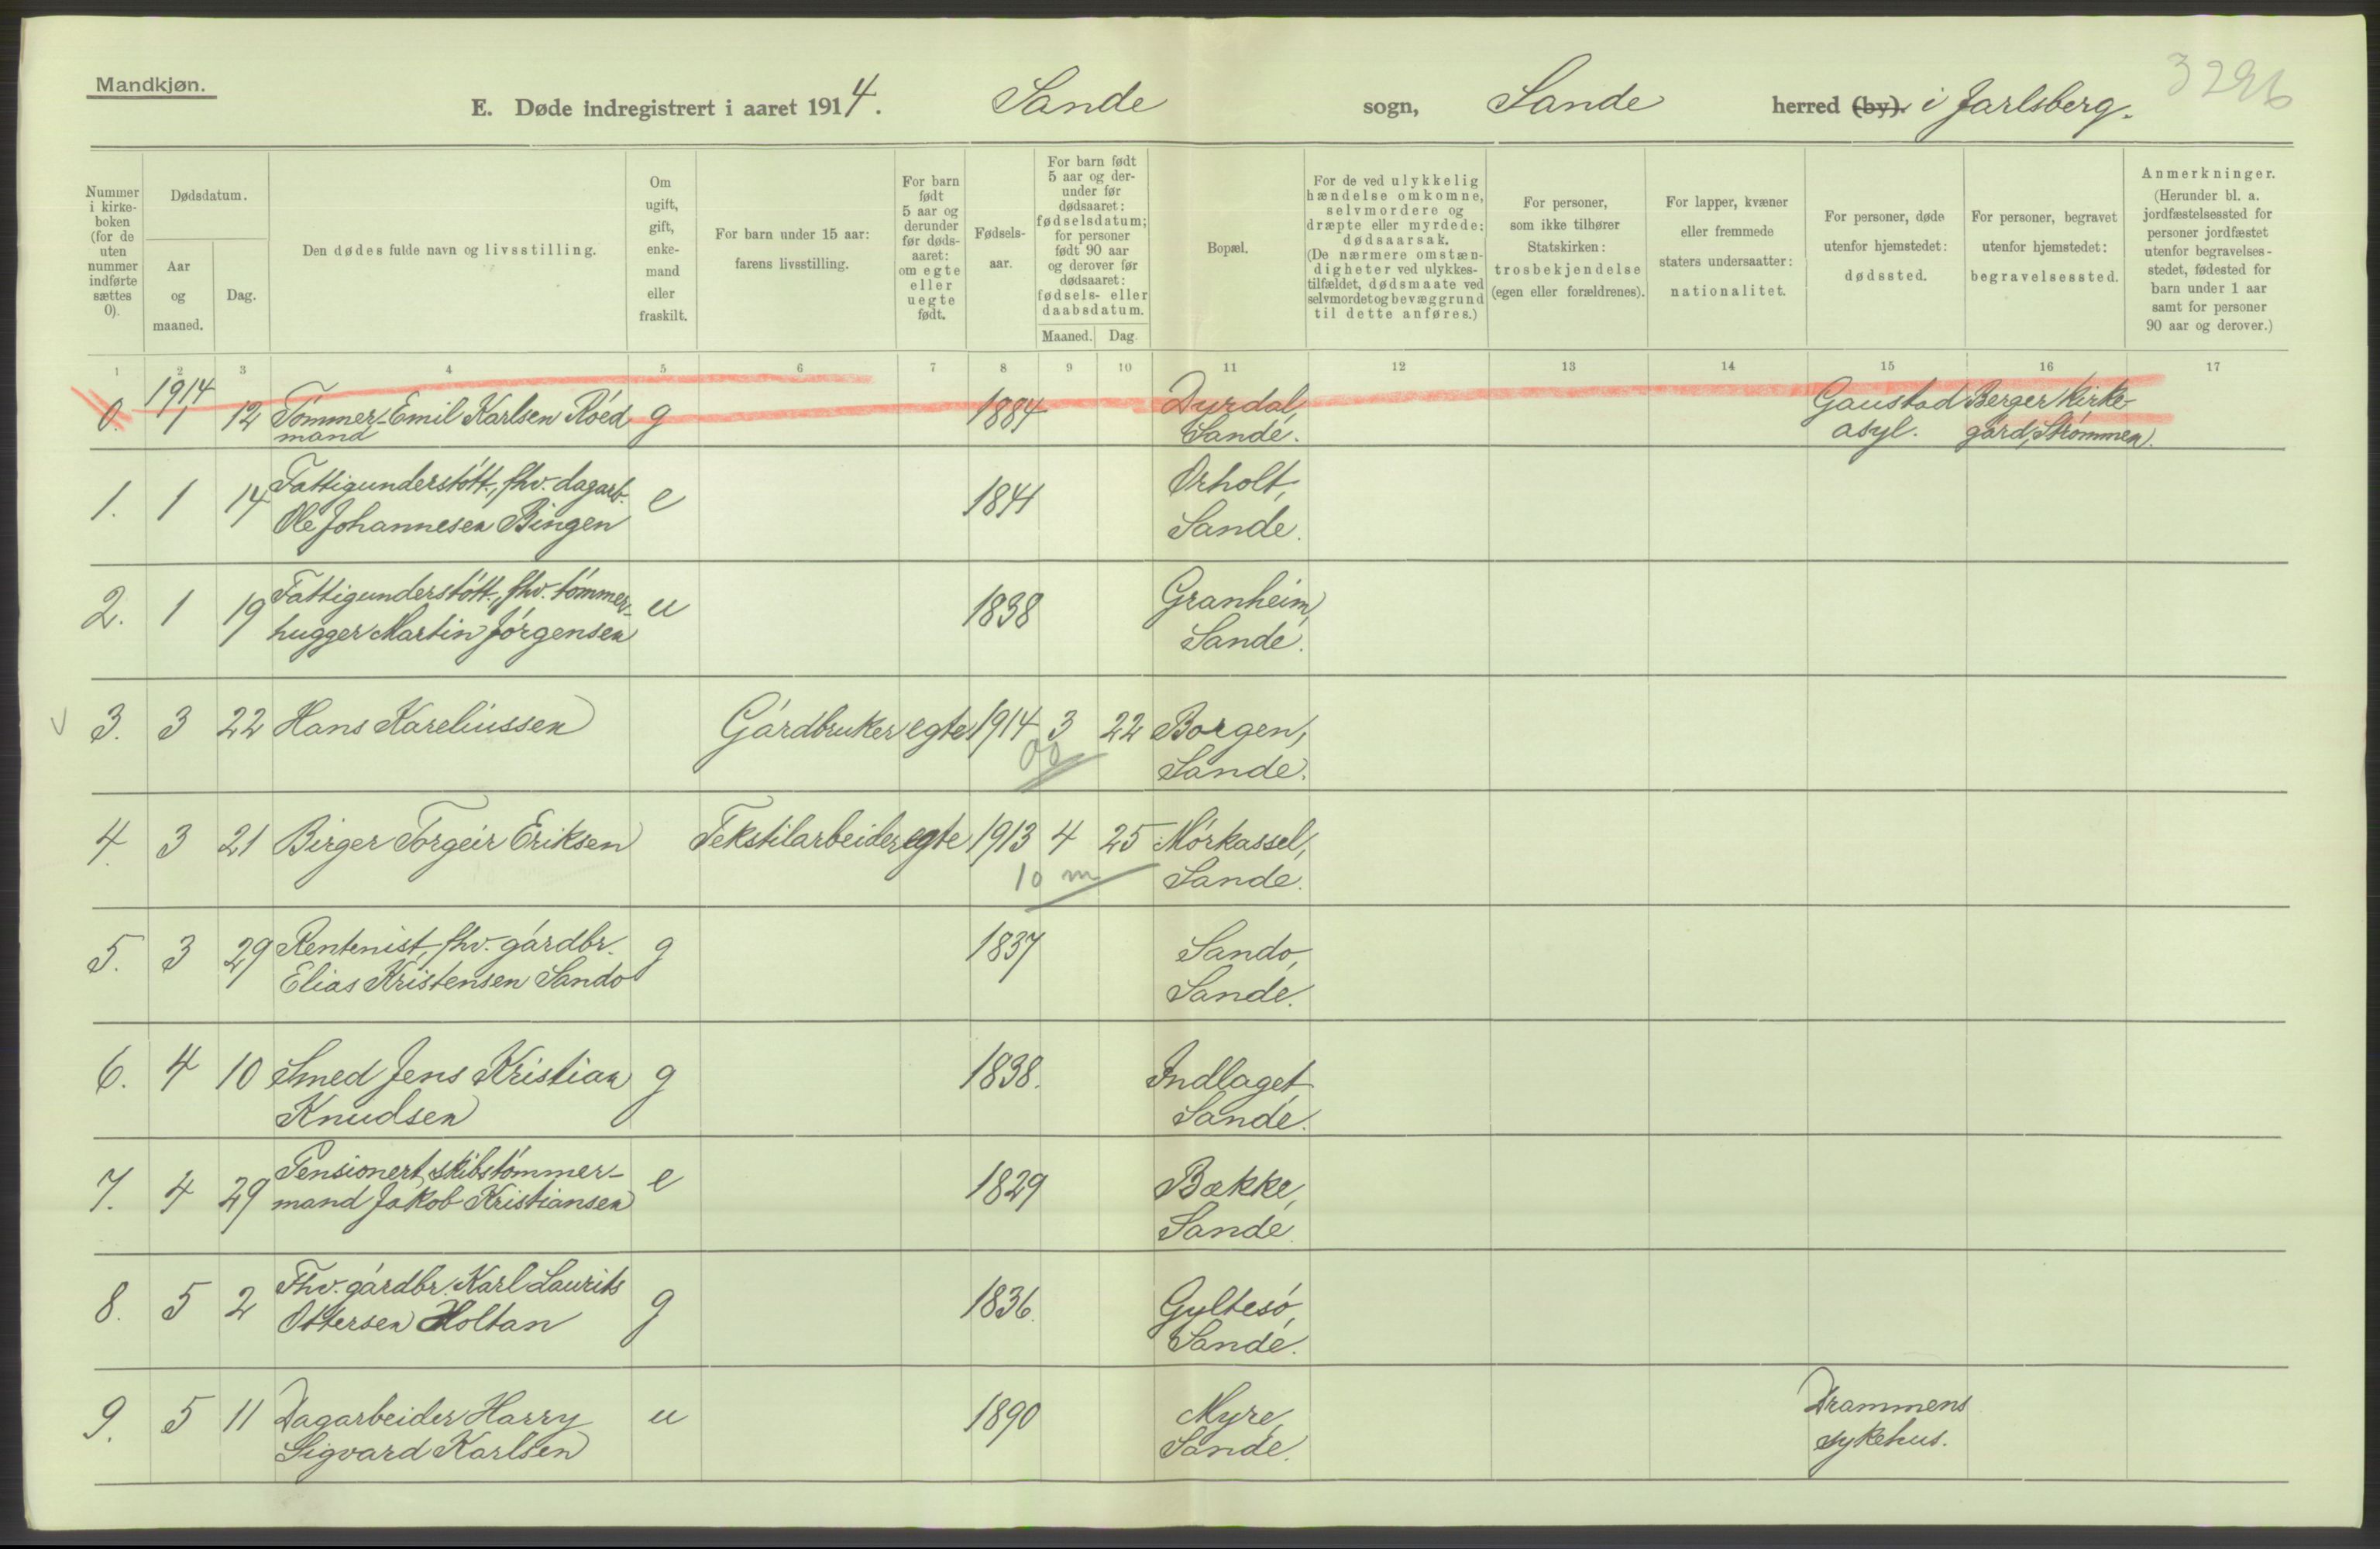 Mandkjøn.
3296
E. Døde indregistrert i aaret 1914. Sande sogn, Sande herred (by). i Jarlsberg.
Nummer i kirke-boken (for de uten nummer indførte sættes 0).
Dødsdatum.
Aar og maaned.
Dag.
Den dødes fulde navn og livsstilling.
Om ugift, gift, enke-mand eller fraskilt.
For barn under 15 aar: farens livsstilling.
For barn født 5 aar og derunder før døds-aaret: om egte eller uegte født.
Fødsels-aar.
For barn født 5 aar og der-under før dødsaaret: fødselsdatum; for personer født 90 aar og derover før dødsaaret: fødsels- eller daabsdatum.
Maaned. Dag.
Bopæl.
For de ved ulykkelig hændelse omkomne, selvmordere og dræpte eller myrdede: dødsaarsak. (De nærmere omstæn-digheter ved ulykkes-tilfældet, dødsmaate ved selvmordet og bevæggrund til dette anføres.)
For personer, som ikke tilhører Statskirken: trosbekjendelse (egen eller forældrenes).
For lapper, kvæner eller fremmede staters undersaatter: nationalitet.
For personer, døde utenfor hjemstedet: dødssted.
For personer, begravet utenfor hjemstedet: begravelsessted.
Anmerkninger. (Herunder bl. a. jordfæstelsessted for personer jordfæstet utenfor begravelses-stedet, fødested for barn under 1 aar samt for personer 90 aar og derover.)
1 2 3 4 5 6 7 8 9 10 11 12 13 14 15 16 17
1914
0. 1 12 Tømmer- Emil Karlsen Røed g 1884 Dyrdal, Gaustad Berger Kirke-
mand Sande. asyl. gård, Strømmen.
1. 1 14 Fattigunderstøtt., fhv. dagarb. e 1841 Orholt,
Ole Johannesen Bingen Sande.
2. 1 19 Fattigunderstøtt., fhv. tømmer- u 1838 Granheim,
hugger Martin Jørgensen Sande.
3. 3 22 Hans Kareliussen Gårdbruker egte 1914 3 22 Borgen,
00 Sande.
4. 3 21 Birger Torgeir Eriksen Tekstilarbeider egte 1913 4 25 Mørkassel,
10 m Sande.
5. 3 29 Rentenist, fhv. gårdbr. g 1837 Sando,
Elias Kristensen Sando Sande.
6. 4 10 Smed Jens Kristian g 1838. Indlaget,
Knudsen Sande.
7. 4 29 Pensionert skibstømmer- e 1829 Bække,
mand Jakob Kristiansen Sande.
8. 5 2 Fhv. gårdbr. Karl Laurits g 1836. Gyltesø,
Ottersen Holtan Sande.
9. 5 11 Dagarbeider Harry u 1890 Myre, Drammens
Sigvard Karlsen Sande. sykehus.